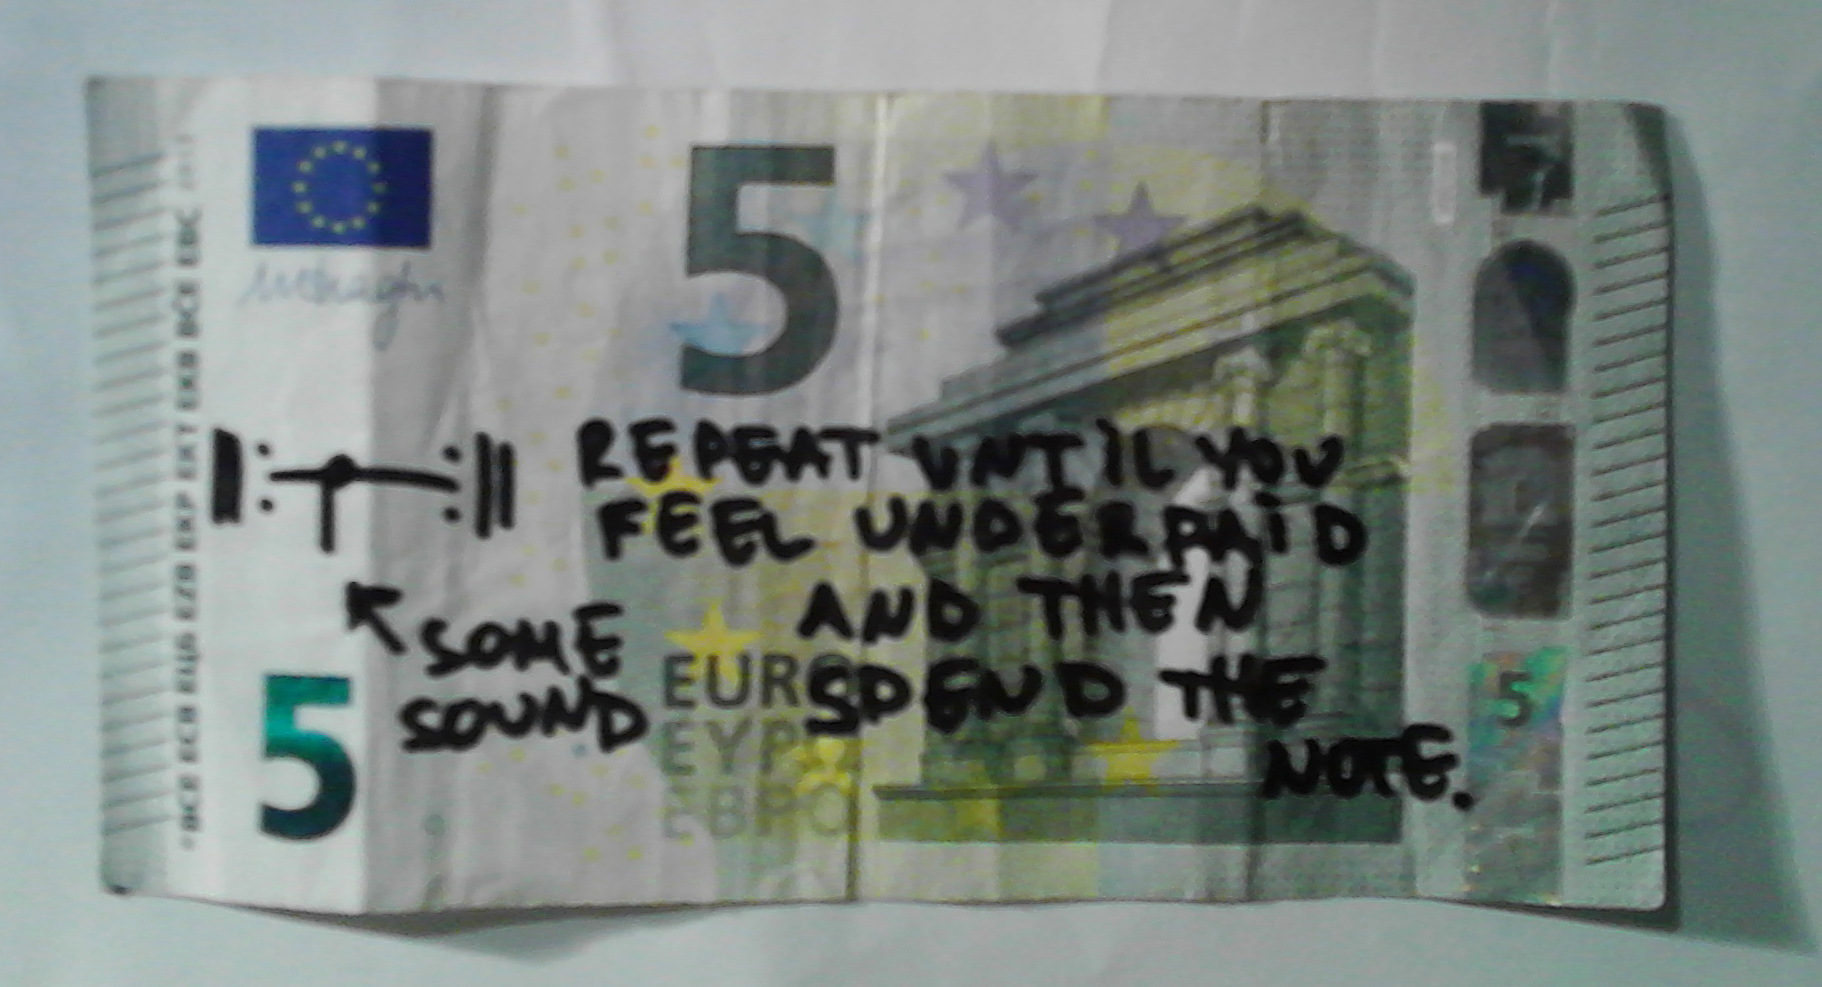 BCE ECB ЕЦБ EZB EKP EKT EKB BČE EBC 2013
5
REPEAT UNTIL YOU
FEEL UNDERPAID
AND THEN
SPEND THE
NOTE.
SOME
SOUND
5
EURO
ΕΥΡΩ
ЕВРО
5